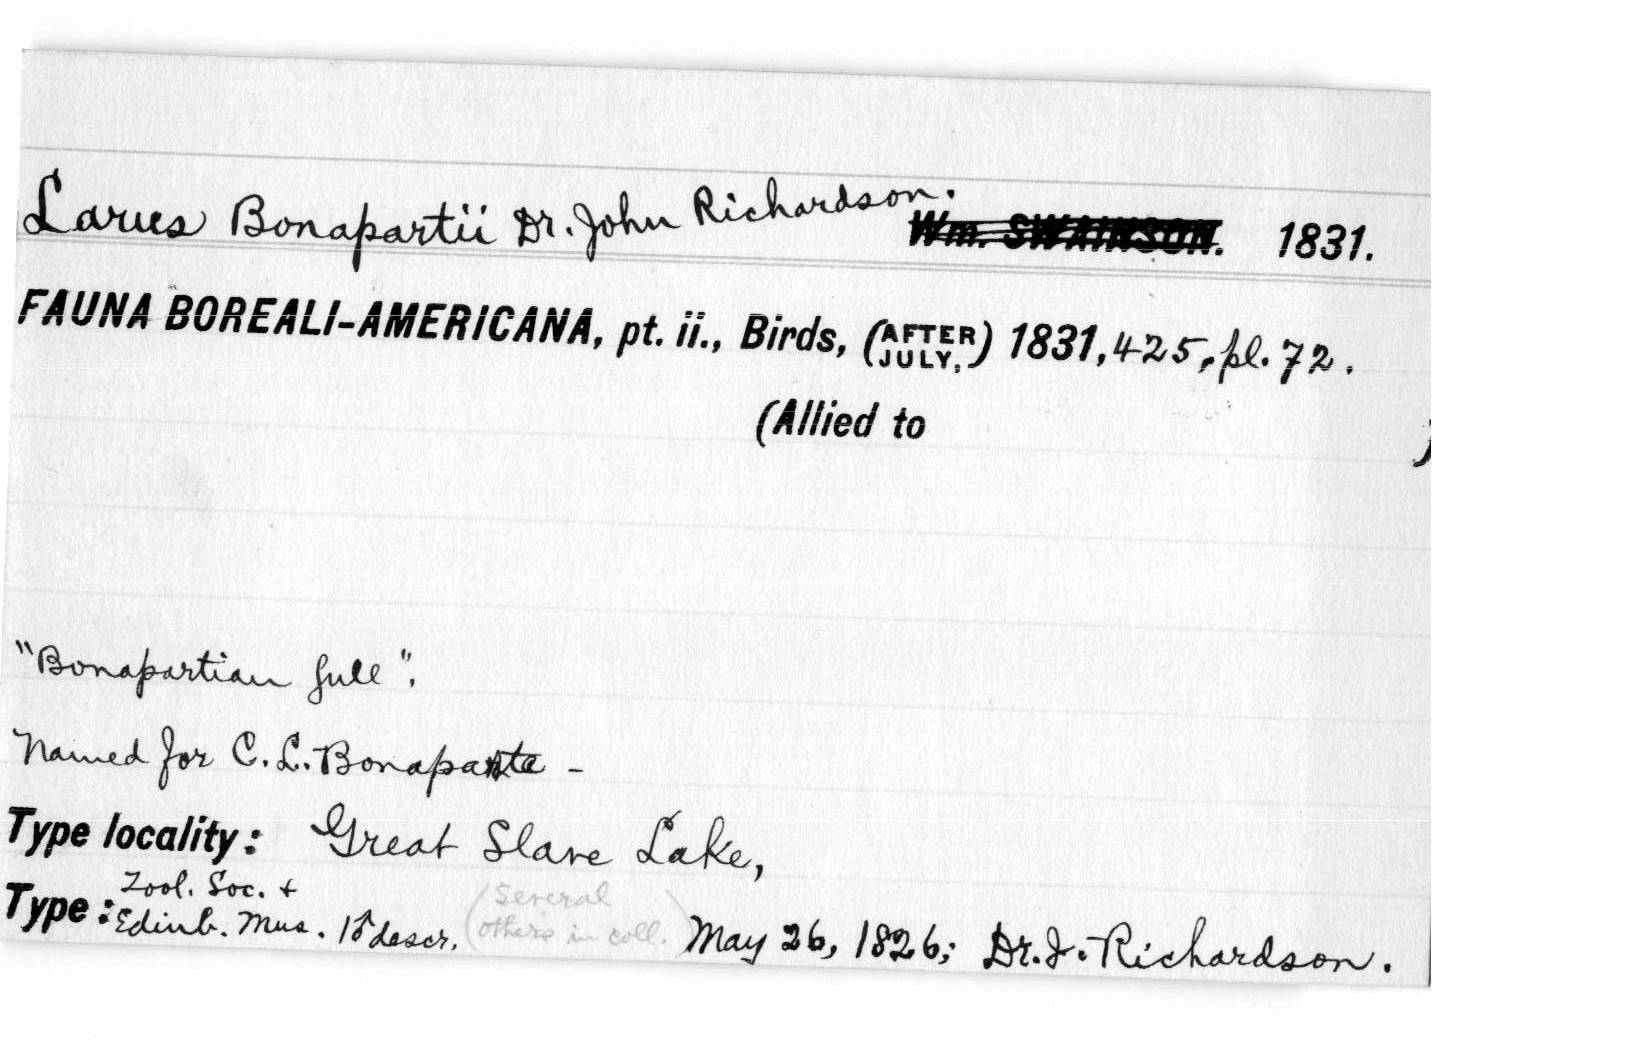 Larus Bonapartii Dr. John Richardson. Wm. SWAINSON. 1831.
FAUNA BOREALI-AMERICANA, pt. ii., Birds, (AFTER JULY,) 1831, 425, pl. 72.
(Allied to )
"Bonapartian Gull".
Named for C. L. Bonaparte -
Type locality: Great Slave Lake,
Type: Zool. Soc. & Edinb. Mus. 1♂ descr. (Several others in coll.) May 26, 1826; Dr. J. Richardson.